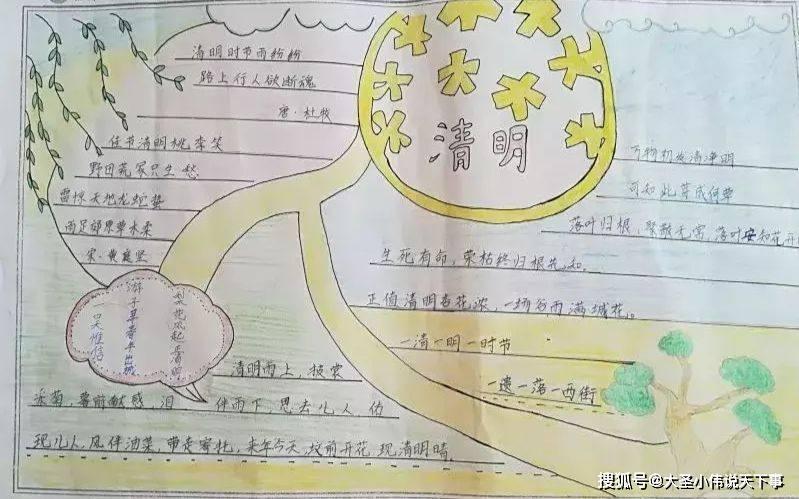 清明时节雨纷纷
路上行人欲断魂
唐·杜牧
佳节清明桃李笑
野田荒冢只生愁
雷惊天地龙蛇蛰
雨足郊原草木柔
宋·黄庭坚
梨花风起正清明
游子寻春半出城
吴惟信
清明
万物初发清净明
可知此草成何草
落叶归根，聚散无常，落叶安知花开
生死有命，荣枯终归根先知。
正值清明杏花浓，一场谷雨满城花。
一清一明一时节
一逸一落一西街
清明雨上，损裳
采菊，墓前献感，泪 伴雨下，思去几人，估
现几人，风伴油菜，带走寄托，来年今天，坟前开花，现清明晴。
搜狐号@大圣小伟说天下事